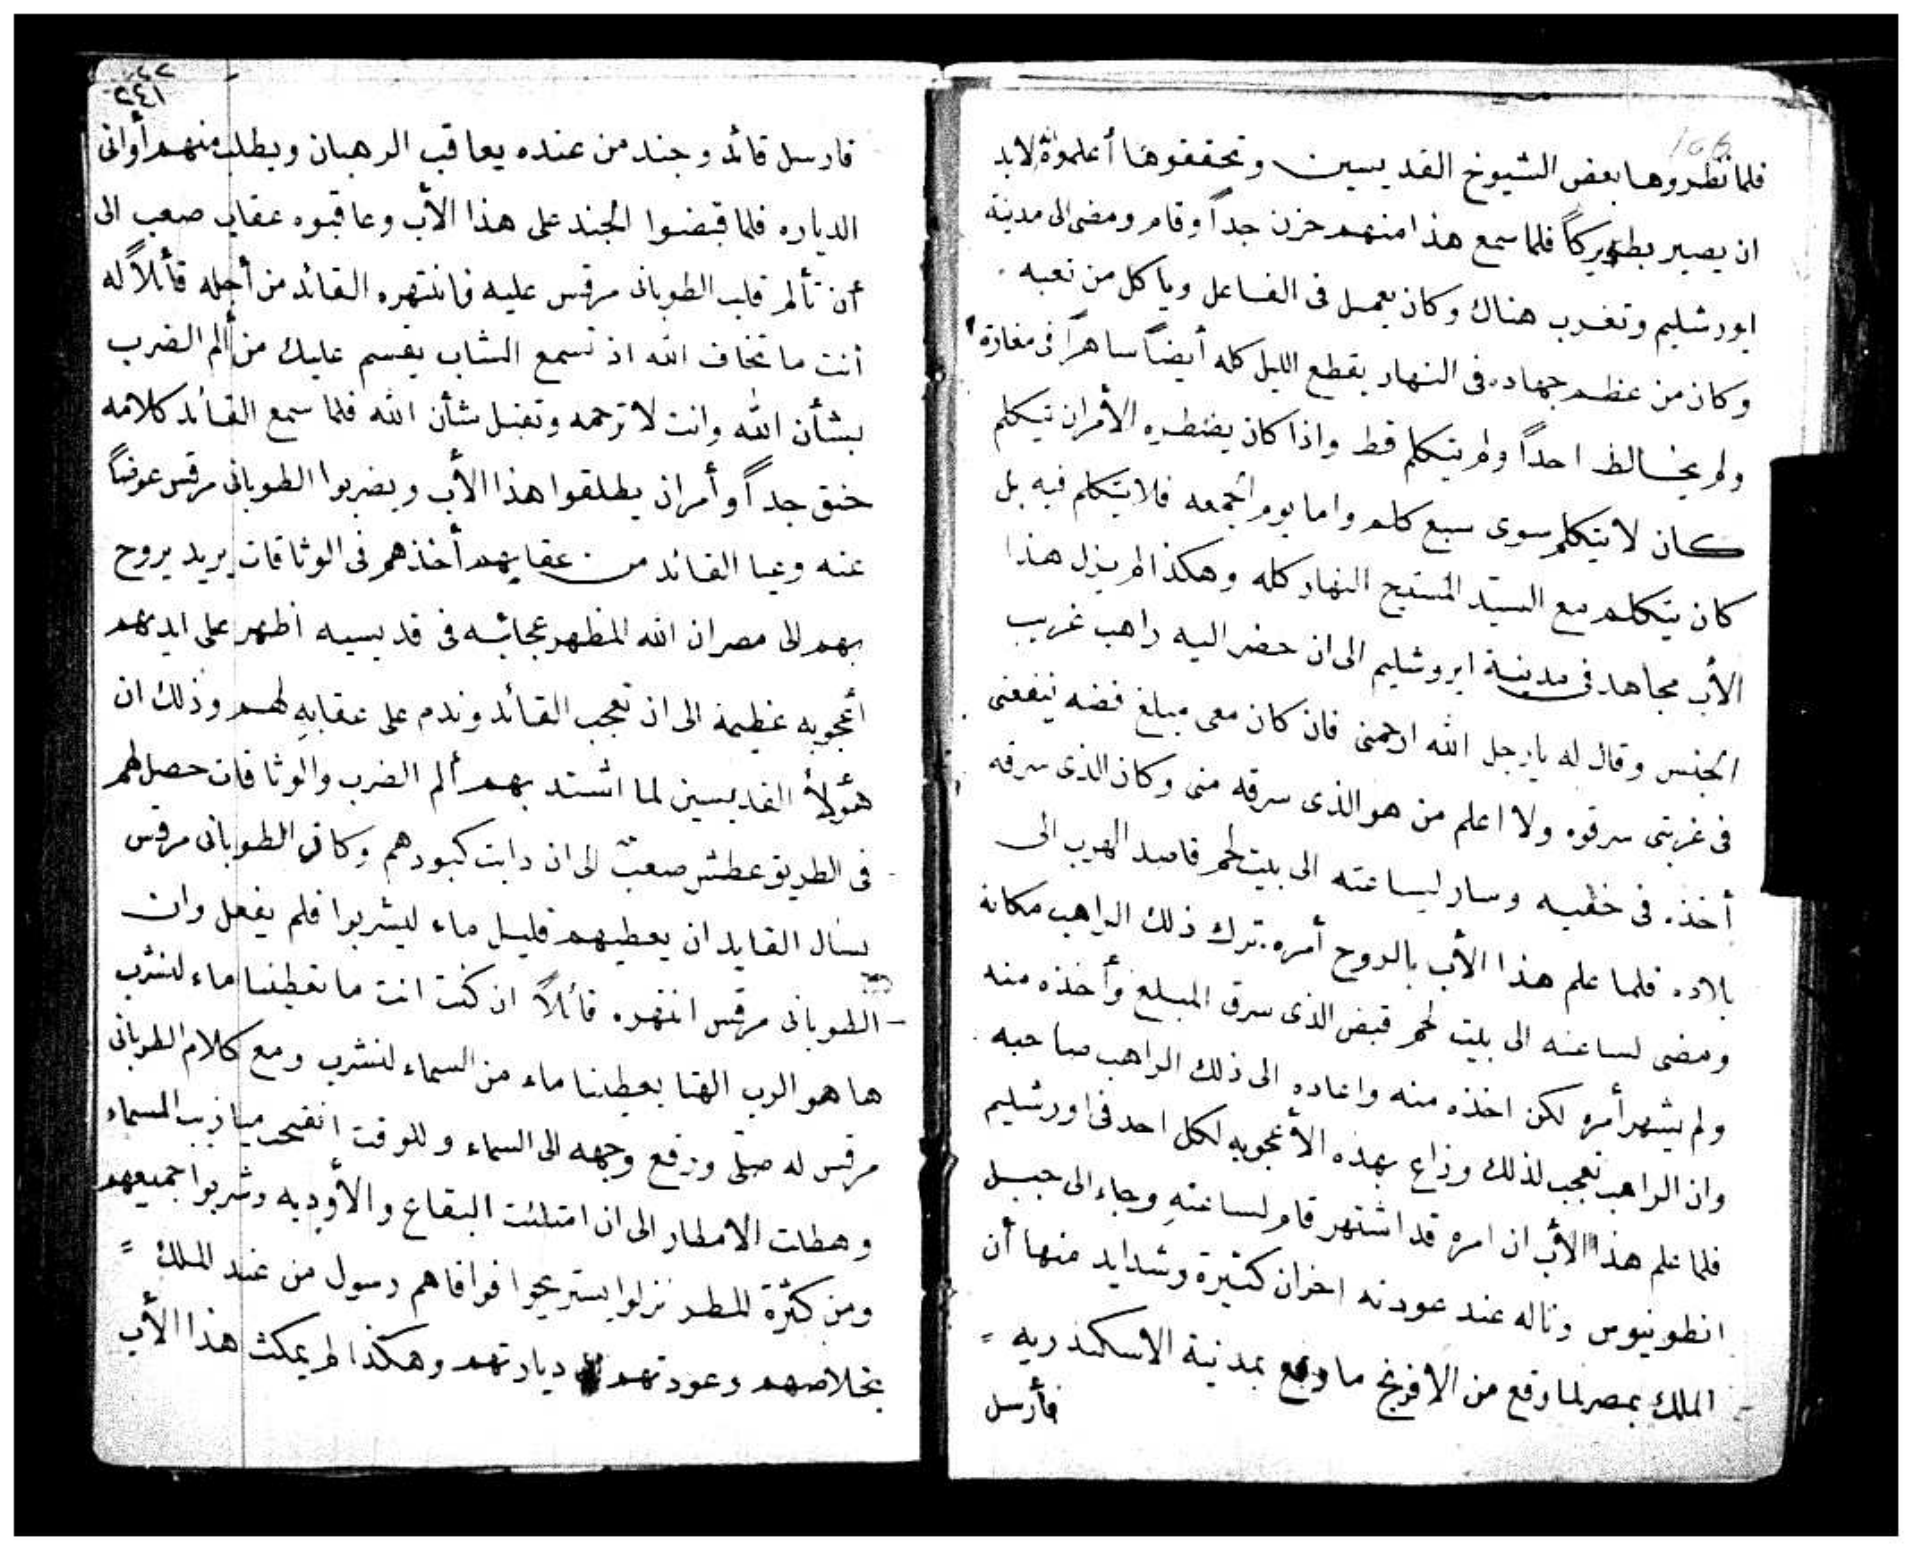 106
فلما نظروها بعض الشيوخ القديسين وتحققوها أعلموه لابد
ان يصير بطريركاً فلما سمع هذا منهم حزن جداً وقام ومضى الى مدينة
اورشليم وتغرب هناك وكان يعمل فى الفاعل وياكل من تعبه .
وكان من عظم جهاده فى النهار يقطع الليل كله أيضاً ساهراً فى مغارة
ولم يخالط احداً ولم يتكلم قط واذا كان يضطره الأمر ان يتكلم
كان لا يتكلم سوى سبع كلم واما يوم الجمعه فلا يتكلم فيه بل
كان يتكلم مع السيد المسيح النهار كله وهكذا لم يزل هذا
الأب مجاهد فى مدينة ايروشليم الى ان حضر اليه راهب غريب
الجنس وقال له يا رجل الله ارحمنى فان كان معى مبلغ فضه ينفعنى
فى غربتى سرقوه ولا اعلم من هو الذى سرقه منى وكان الذى سرقه
أخذه فى خفيه وسار لساعته الى بيت لحم قاصد الهرب الى
بلاده فلما علم هذا الأب بالروح أمره. ترك ذلك الراهب مكانه
ومضى لساعته الى بيت لحم قبض الذى سرق المبلغ وأخذه منه
ولم يشهر أمره لكن اخذه منه واعاده الى ذلك الراهب صاحبه .
وان الراهب تعجب لذلك وزاع بهذه الأعجوبه لكل احد فى اورشليم
فلما علم هذا الأب ان امره قد اشتهر قام لساعته وجاء الى جبل
انطونيوس وناله عند عودته احزان كثيرة وشدايد منها أن
الملك بمصر لما وقع من الافرنج ما وقع بمدينة الاسكندريه =
فأرسل
٢٤١
فارسل قائد وجند من عنده يعاقب الرهبان ويطلب منهم أوانى
الدياره فلما قبضوا الجند على هذا الأب وعاقبوه عقاب صعب الى
أن تألم قلب الطوبانى مرقس عليه فانتهره القائد من أجله قائلاً له
أنت ما تخاف الله اذ تسمع الشاب يقسم عليك من ألم الضرب
بشأن الله وانت لا ترحمه وتقبل شأن الله فلما سمع القائد كلامه
حنق جداً وأمر ان يطلقوا هذا الأب ويضربوا الطوبانى مرقس عوضاً
عنه وعيا القائد من عقابهم أخذهم فى الوثاقات يريد يروح
بهم الى مصر ان الله المظهر عجائبه فى قديسيه اظهر على ايديهم
أعجوبه عظيمة الى ان تعجب القائد وندم على عقابه لهم وذلك ان
هؤلاء القديسين لما اشتد بهم ألم الضرب والوثاقات حصل لهم
فى الطريق عطش صعب الى ان دابت كبودهم وكان الطوبانى مرقس
يسال القايد ان يعطيهم قليل ماء ليشربوا فلم يفعل وان
الطوبانى مرقس انتهره قائلاً ان كنت انت ما تعطينا ماء لنشرب
ها هو الرب الهنا يعطينا ماء من السماء لنشرب ومع كلام الطوبانى
مرقس له صلى ورفع وجهه الى السماء وللوقت انفتحت ميازيب السماء
وهطلت الامطار الى ان امتلئت البقاع والأوديه وشربوا جميعهم
ومن كثرة المطر نزلوا يستريحوا فوافاهم رسول من عند الملك =
بخلاصهم وعودتهم ديارتهم وهكذا لم يمكث هذا الأب